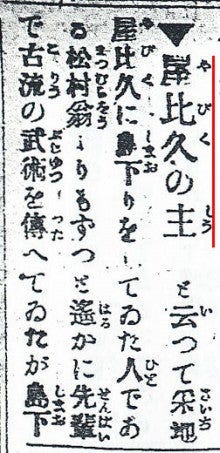 ▼屋比久の主 と云つて采地
屋比久に島下りをしてゐた人であ
る松村翁よりもずつと遙かに先輩
で古流の武術を傳へてゐたが島下